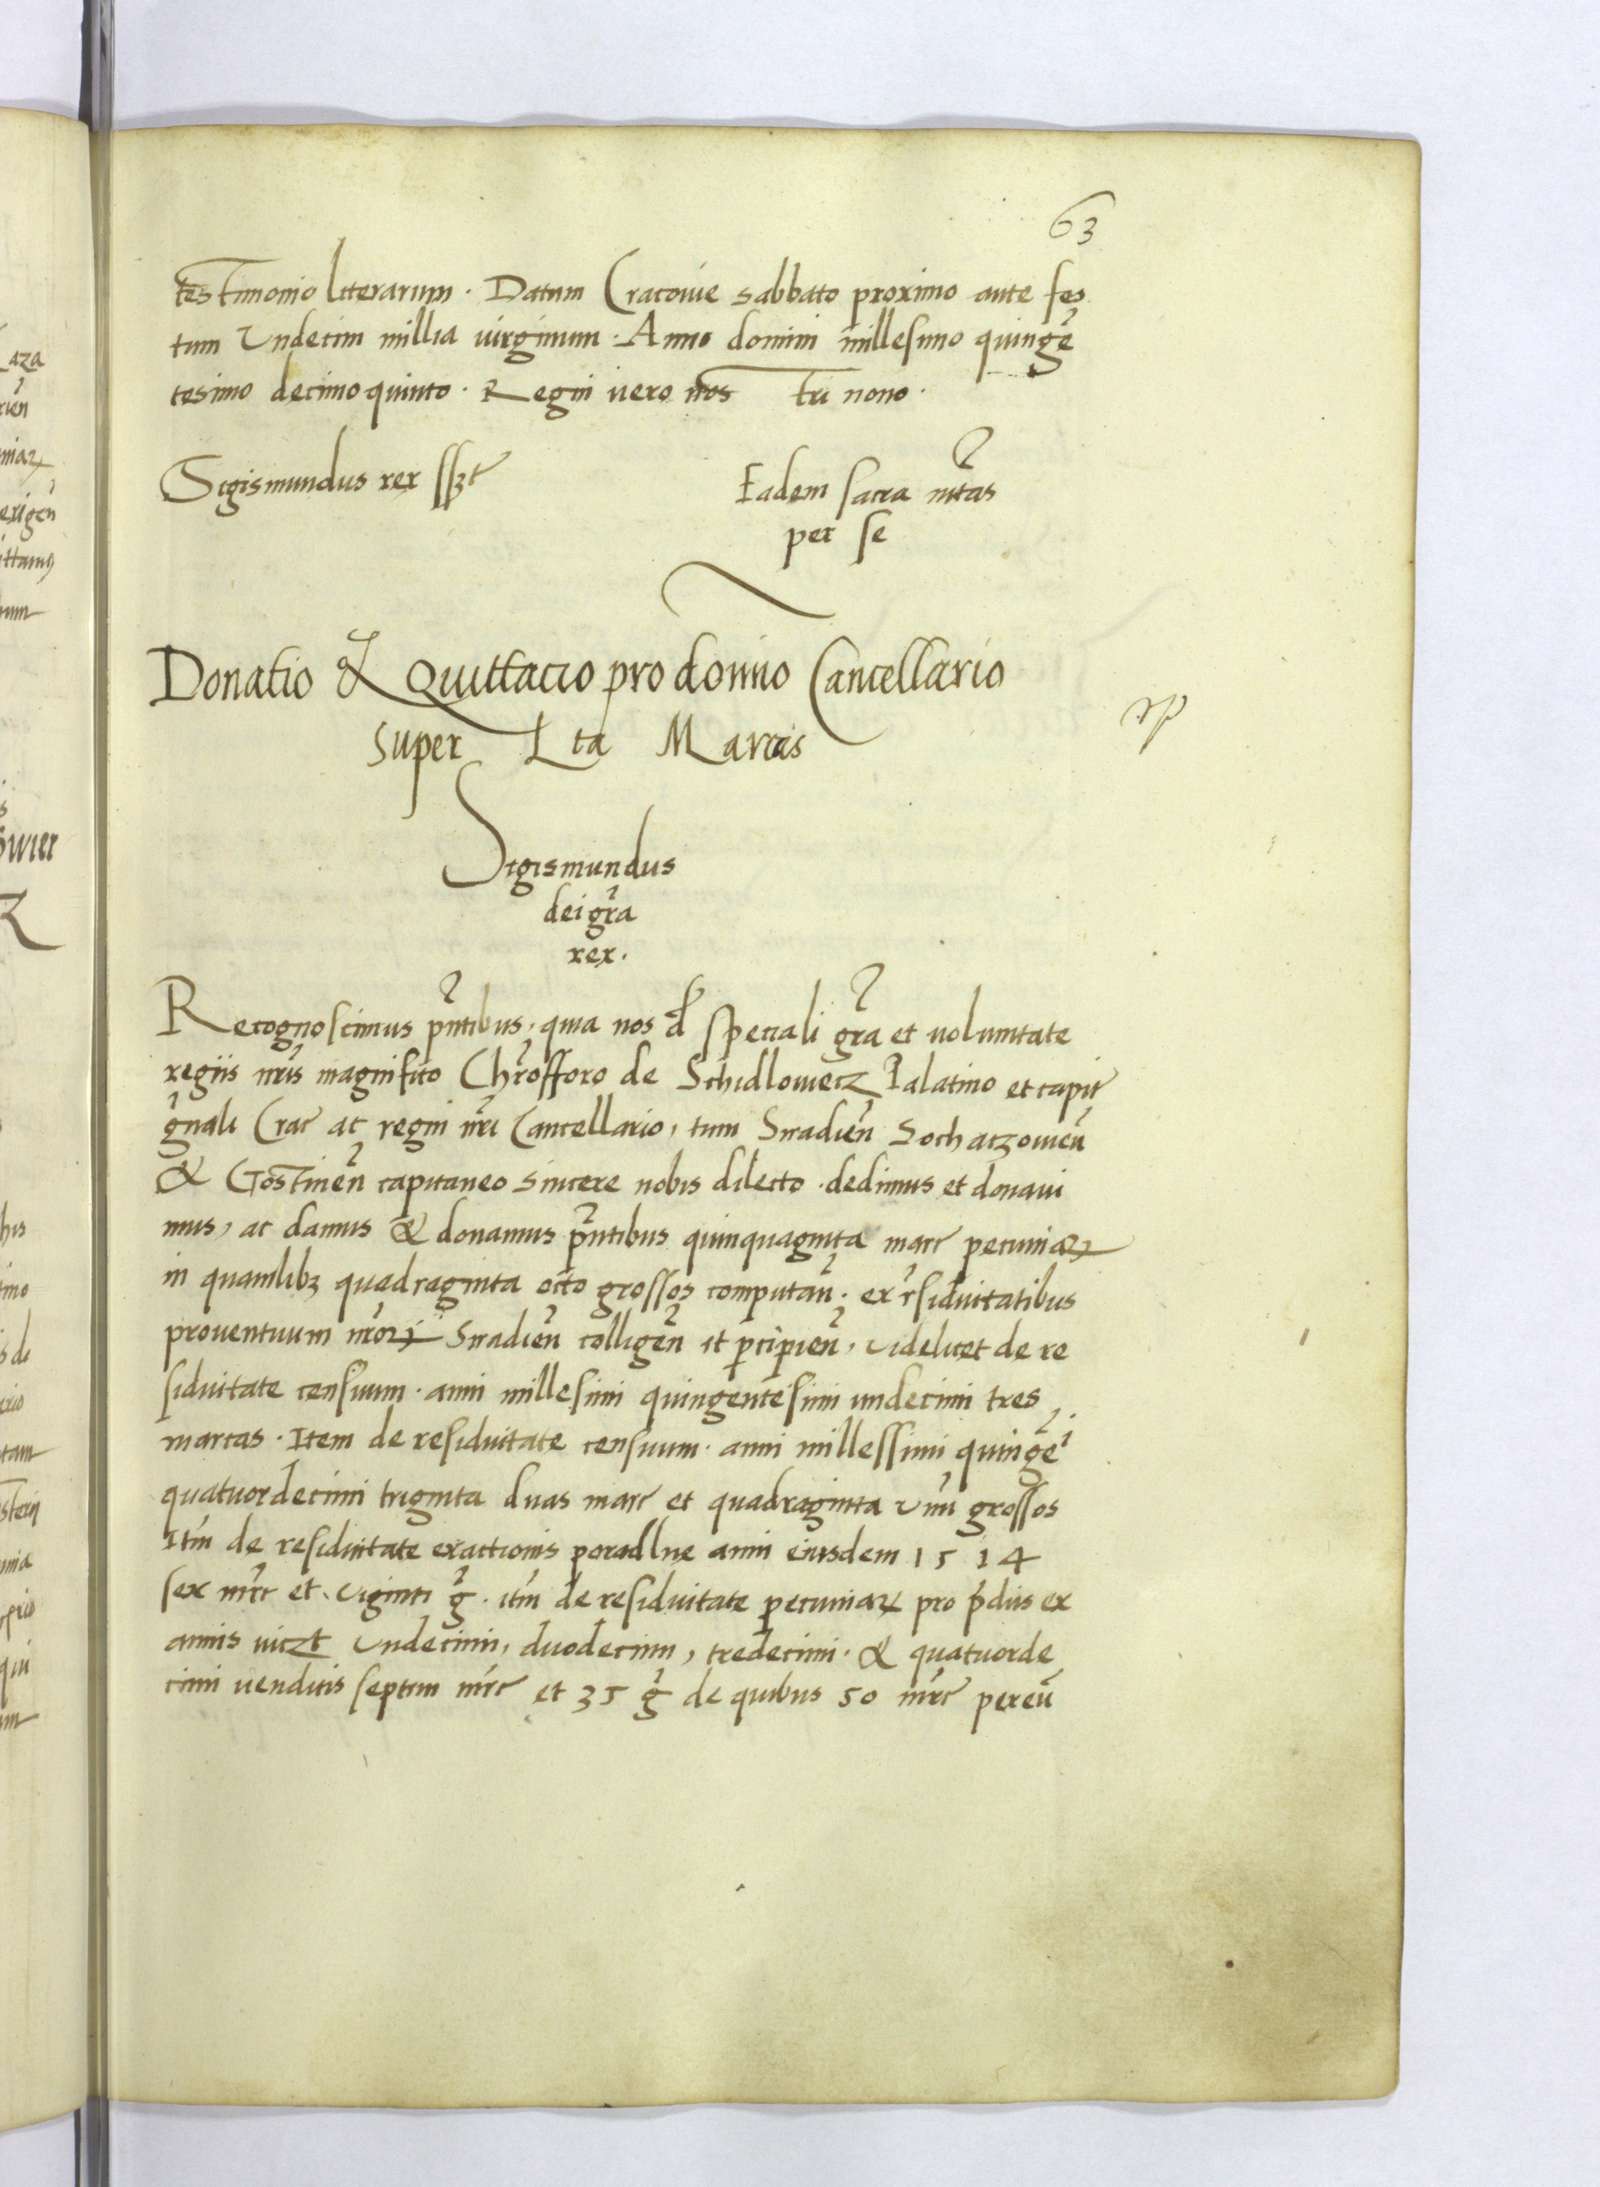 63
testimonio literarum. Datum Cracovie sabbato proximo ante fes
tum Undecim millia virginum. Anno domini millesimo quingē
tesimo decimoquinto. Regni vero nos tri nono.
Sigismundus rex sszt
Eadem sacra mtas
per se
Donatio & Quittacio pro domino Cancellario
super Lta Marcis
rp
Sigismundus
dei gra
rex.
Recognoscimus pntibus, quia nos de speciali gra et voluntate
regiis nris magnifico Chrofforo de Schidlowecz Palatino et capit
gnali Crac ac regni nri Cancellario, tum Siradien Sochaczovien
& Gostinen capitaneo sincere nobis dilecto. dedimus et donavi
mus, ac damus & donamus pntibus quinquaginta marc pecuniaꝝ
in quamlibꝫ quadraginta octo grossos computan. ex rsiduitatibus
proventuum nroꝝ Siradien colligen et pcipien, videlicet de re
siduitate censuum. anni millesimi quingentesimi undecimi tres
marcas. Item de residuitate censuum. anni millessimi quingeī
quatuordecimi triginta duas marc et quadraginta unū grossos
Itm de residuitate exactionis poradlne anni eiusdem 1514
sex mrc et viginti g. itm de residuitate pecuniaꝝ pro pdiis ex
annis viczt undecimi, duodecimi, tredecimi. & quatuorde
cimi venditis septim mrc et 35 g de quibus 50 mrc pereū